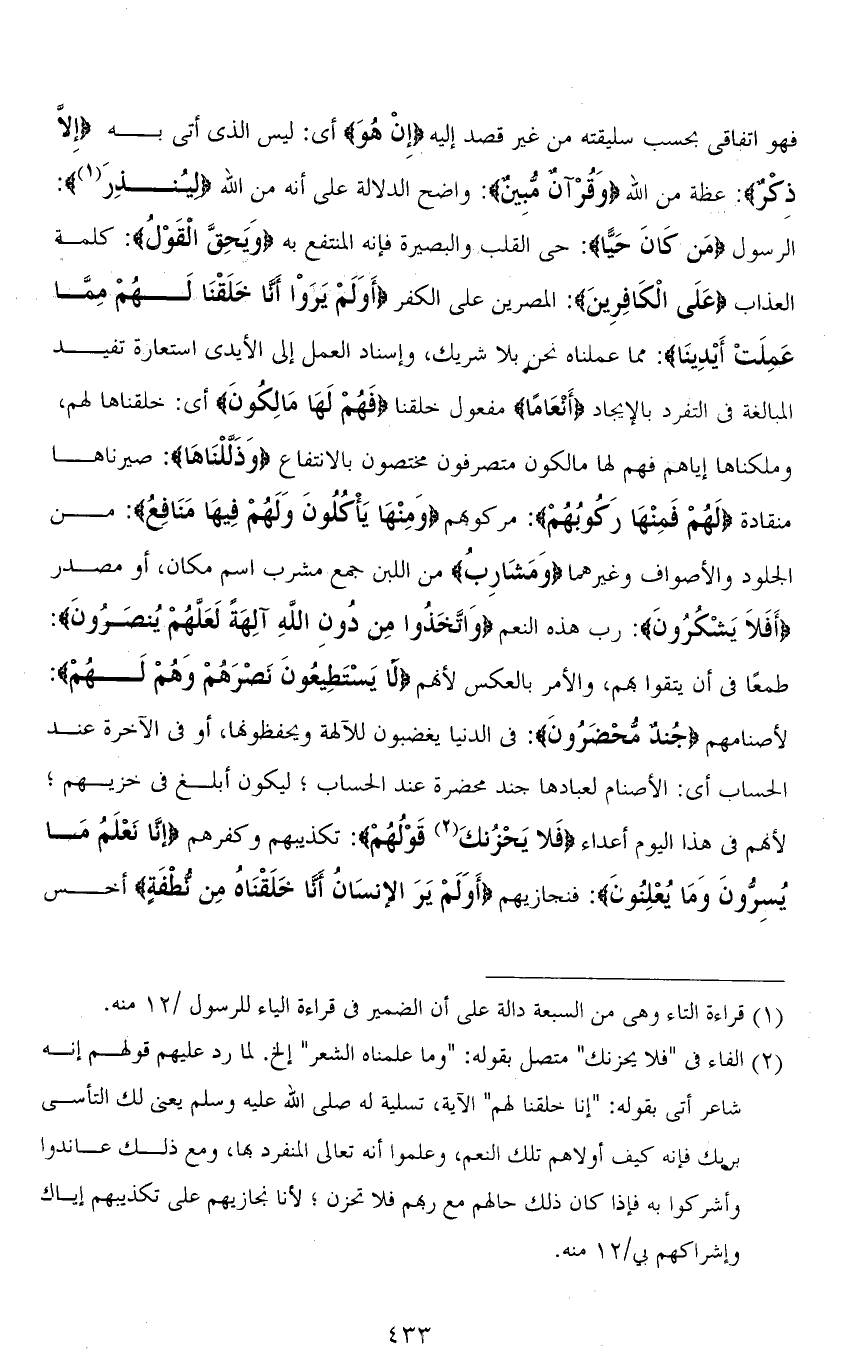 فهو اتفاقى بحسب سليقته من غير قصد إليه ﴿إِنْ هُوَ﴾ أى: ليس الذى أتى بـــه ﴿إِلاَّ
ذِكْرٌ﴾: عظة من الله ﴿وَقُرْآنٌ مُّبِينٌ﴾: واضح الدلالة على أنه من الله ﴿لِيُنــــذِرَ(١)﴾:
الرسول ﴿مَن كَانَ حَيًّا﴾: حى القلب والبصيرة فإنه المنتفع به ﴿وَيَحِقَّ الْقَوْلُ﴾: كلمـة
العذاب ﴿عَلَى الْكَافِرِينَ﴾: المصرين على الكفر ﴿أَوَلَمْ يَرَوْا أَنَّا خَلَقْنَا لَـــهُمْ مِمَّـا
عَمِلَتْ أَيْدِينَا﴾: مما عملناه نحن بلا شريك، وإسناد العمل إلى الأيدى استعارة تفيـد
المبالغة فى التفرد بالإيجاد ﴿أَنْعَامًا﴾ مفعول خلقنا ﴿فَهُمْ لَهَا مَالِكُونَ﴾ أى: خلقناها لهم،
وملكناها إياهم فهم لها مالكون متصرفون مختصون بالانتفاع ﴿وَذَلَّلْنَاهَا﴾: صيرناهـا
منقادة ﴿لَهُمْ فَمِنْهَا رَكُوبُهُمْ﴾: مركوبهم ﴿وَمِنْهَا يَأْكُلُونَ وَلَهُمْ فِيهَا مَنَافِعُ﴾: مـــن
الجلود والأصواف وغيرهما ﴿وَمَشَارِبُ﴾ من اللبن جمع مشرب اسم مكان، أو مصـدر
﴿أَفَلاَ يَشْكُرُونَ﴾: رب هذه النعم ﴿وَاتَّخَذُوا مِن دُونِ اللَّهِ آلِهَةً لَعَلَّهُمْ يُنصَـرُونَ﴾:
طمعًا فى أن يتقوا بهم، والأمر بالعكس لأنهم ﴿لَا يَسْتَطِيعُونَ نَصْرَهُمْ وَهُمْ لَـــهُمْ﴾:
لأصنامهم ﴿جُندٌ مُّحْضَرُونَ﴾: فى الدنيا يغضبون للآلهة ويحفظونها، أو فى الآخرة عنـد
الحساب أى: الأصنام لعبادها جند محضرة عند الحساب ؛ ليكون أبلـغ فى خزيـهم ؛
لأنهم فى هذا اليوم أعداء ﴿فَلا يَحْزُنكَ(٢) قَوْلُهُمْ﴾: تكذيبهم وكفرهم ﴿إِنَّا نَعْلَمُ مَـا
يُسِرُّونَ وَمَا يُعْلِنُونَ﴾: فنجازيهم ﴿أَوَلَمْ يَرَ الإِنسَانُ أَنَّا خَلَقْنَاهُ مِن نُّطْفَةٍ﴾ أخـــس
(١) قراءة التاء وهى من السبعة دالة على أن الضمير فى قراءة الياء للرسول /١٢ منه.
(٢) الفاء فى "فلا يحزنك" متصل بقوله: "وما علمناه الشعر" إلخ. لما رد عليهم قولهـم إنـه
شاعر أتى بقوله: "إنا خلقنا لهم" الآية، تسلية له صلى الله عليه وسلم يعنى لك التأسـى
بربك فإنه كيف أولاهم تلك النعم، وعلموا أنه تعالى المنفرد بها، ومع ذلـك عـاندوا
وأشركوا به فإذا كان ذلك حالهم مع ربهم فلا تحزن ؛ لأنا نجازيهم على تكذيبهم إيـاك
وإشراكهم بي/١٢ منه.
٤٣٣